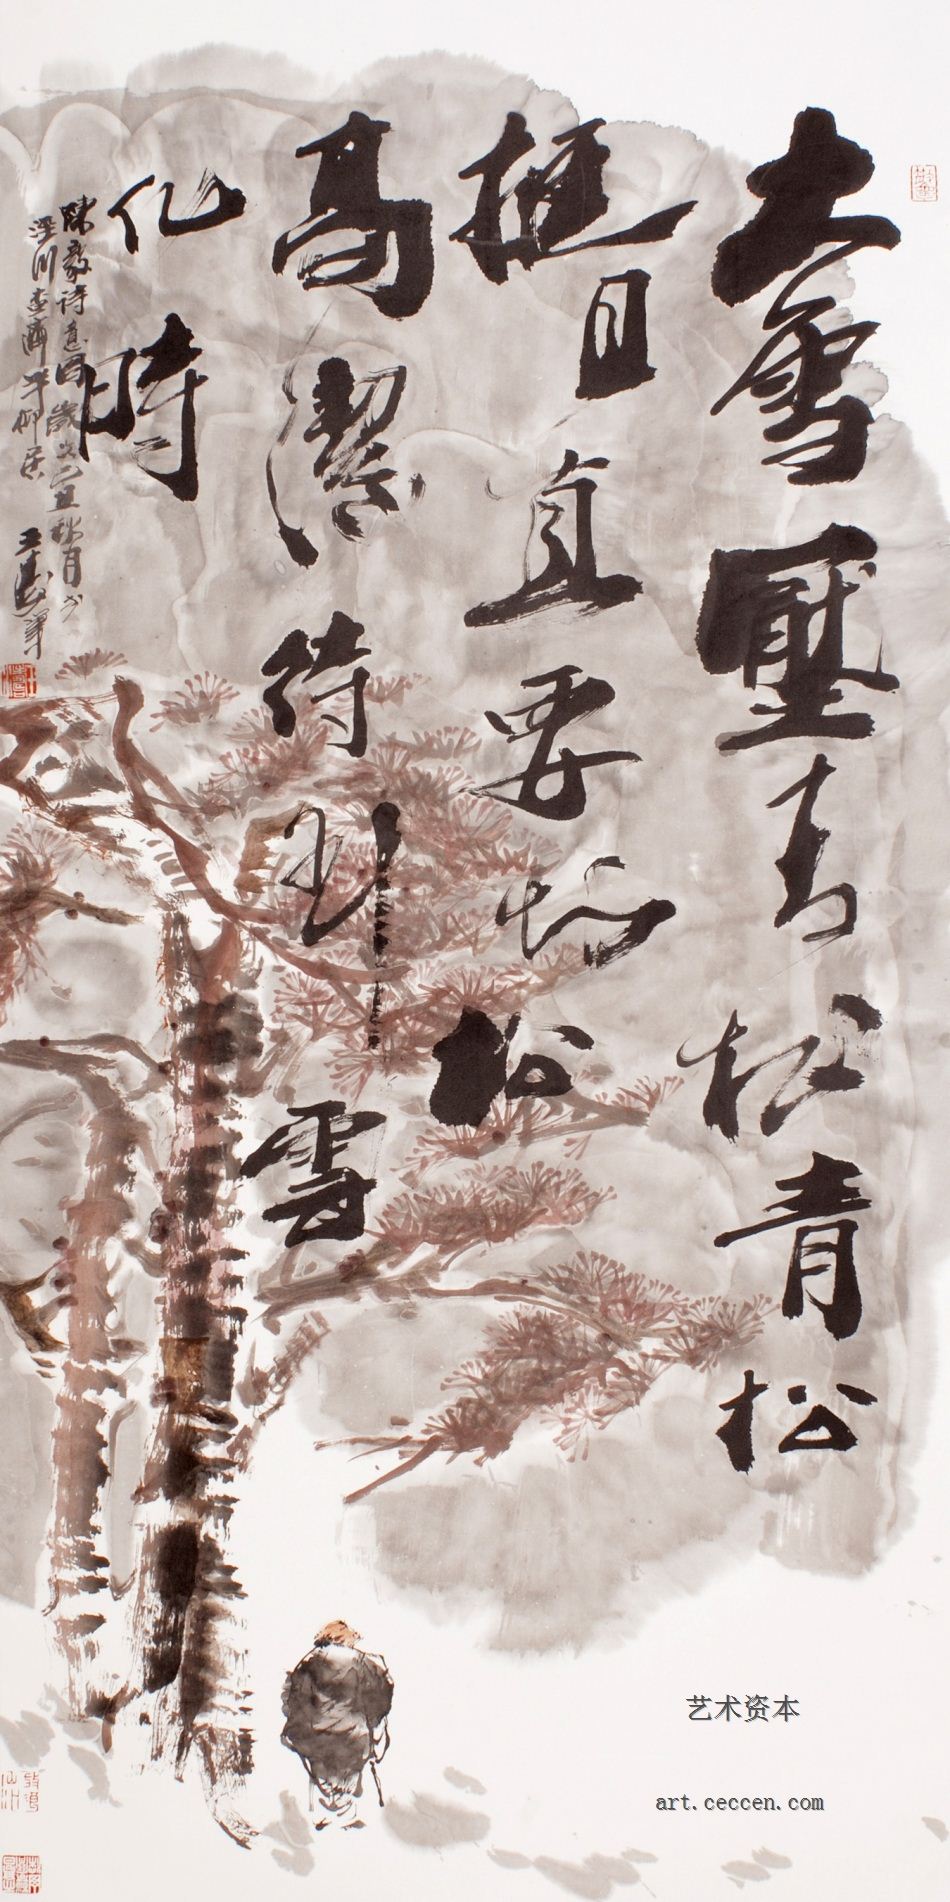 大雪壓青松青松
挺且直要知松
高潔待到雪
化時
陳毅诗意图歲次己丑秋月於
涇川查濟
艺术资本
art.ceccen.com